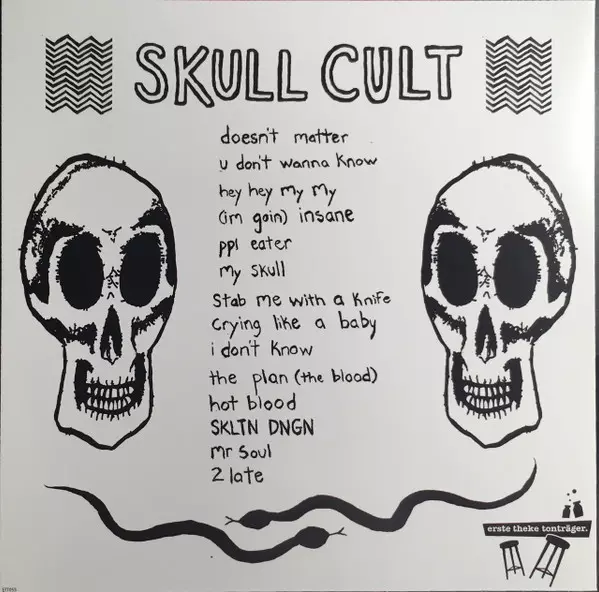 SKULL CULT
doesn't matter
u don't wanna know
hey hey my my
(im goin) insane
ppl eater
my skull
Stab me with a knife
crying like a baby
i don't know
the plan (the blood)
hot blood
SKLTN DNGN
mr soul
2 late
erste theke tonträger.